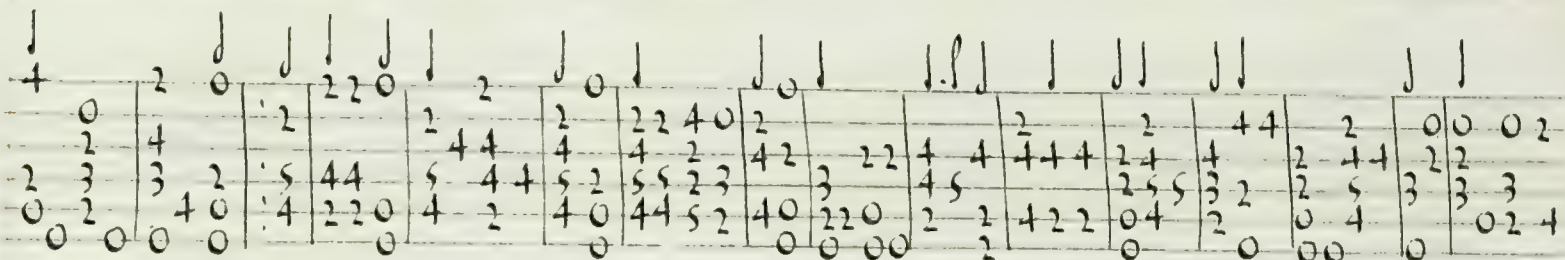 4 2 0 2 2 0 2 0 0
0 : 2 2 2 2 2 4 0 2 2 2 4 4 2 0 0 0 2
2 4 4 4 4 4 2 4 2 2 2 4 4 4 4 4 2 4 4 2 4 4 2 2
2 3 3 2 : 5 4 4 5 4 4 5 2 5 5 2 3 3 4 5 2 5 5 3 2 2 5 3 3 3
0 2 4 0 : 4 2 2 0 4 2 4 0 4 4 5 2 4 0 2 2 0 2 2 4 2 2 0 4 2 0 4 0 2 4
0 0 0 0 0 0 0 0 0 0 2 0 0 0 0 0